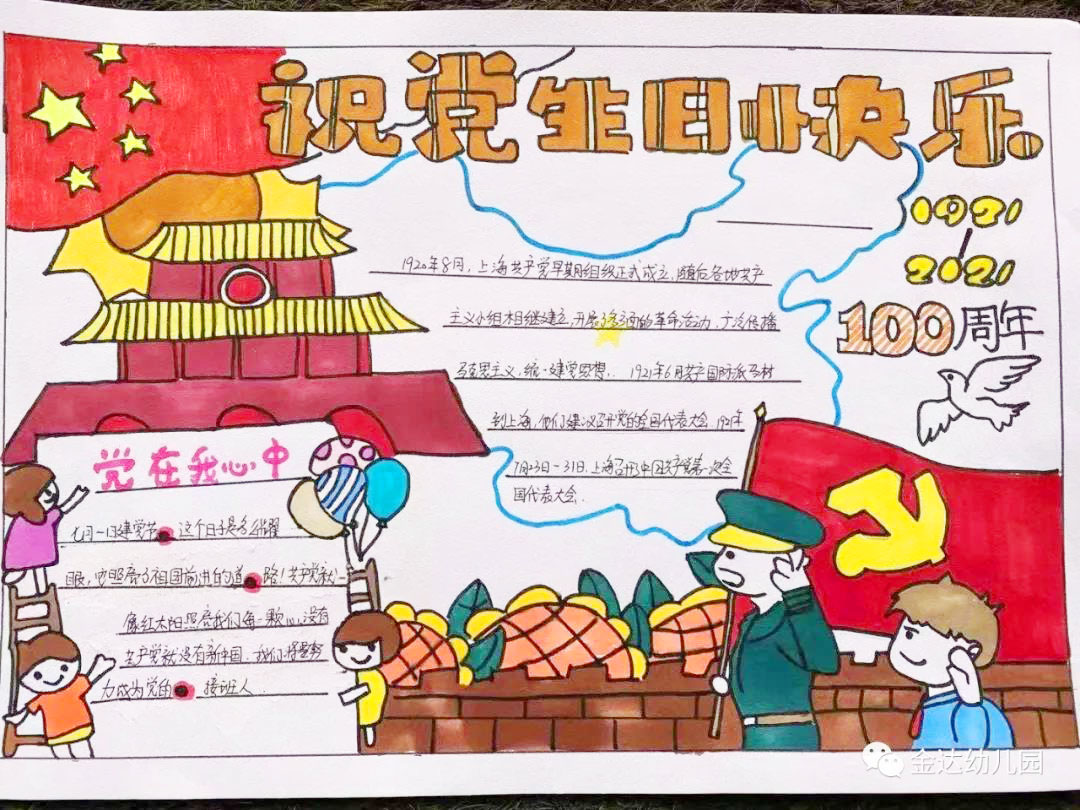 祝党生日快乐
1921
2021
100周年
1920年8月，上海共产党早期组织正式成立，随后各地共产
主义小组相继建立，开展了多方面的革命活动，广泛传播
马克思主义，统一建党思想。1921年6月共产国际派马林
到上海，他们建议召开党的全国代表大会，1921年
7月23日-31日，上海召开中国共产党第一次全
国代表大会.
党在我心中
七月一日建党节 这个日子是多么耀
眼，它照亮了祖国前进的道 路！共产党就
像红太阳照亮我们每一颗心，没有
共产党就没有新中国，我们将要努
力成为党的 接班人.
金达幼儿园